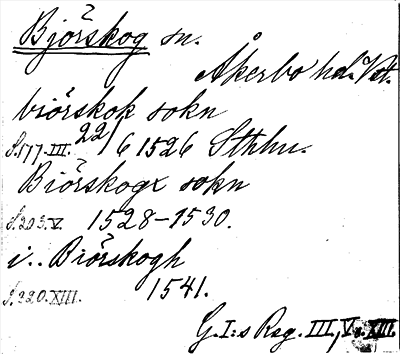 Björskog sn.
Åkerbo hd. Vstm.
biörskok sokn
S.177.III. 22/6 1526 Sthlm.
Biörskogx sokn
S.203.V. 1528-1530.
i.. Biörskogh
S.220.XIII. 1541.
G.I:s Reg. III, V, XIII.